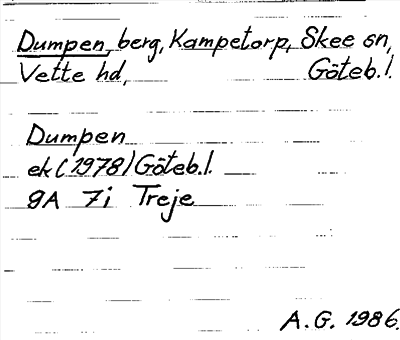 Dumpen, berg, Kampetorp, Skee sn,
Vette hd, Göteb. l.
Dumpen
ek (1978) Göteb. l.
9A 7i Treje
A.G. 1986.